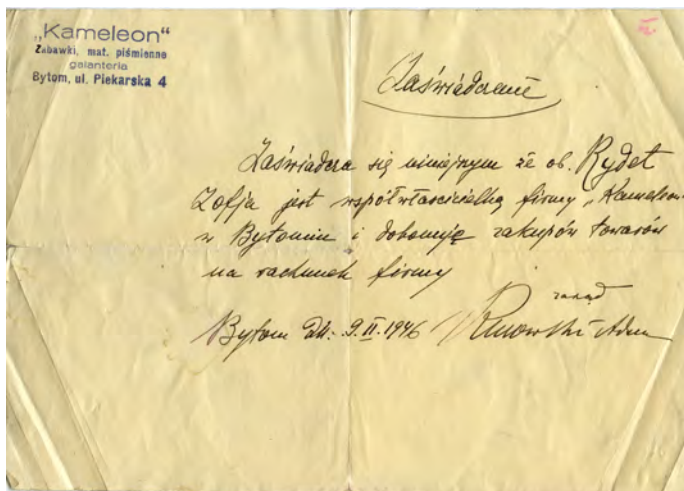 „Kameleon“
Zabawki, mat. piśmienne
galanteria
Bytom, ul. Piekarska 4
Zaświadczenie
Zaświadcza się niniejszym że ob. Rydet
Zofja jest współwłaścicielką firmy „Kameleon“
w Bytomiu i dokonuje zakupów towarów
na rachunek firmy
zarząd
Bytom dn. 9.II.1946